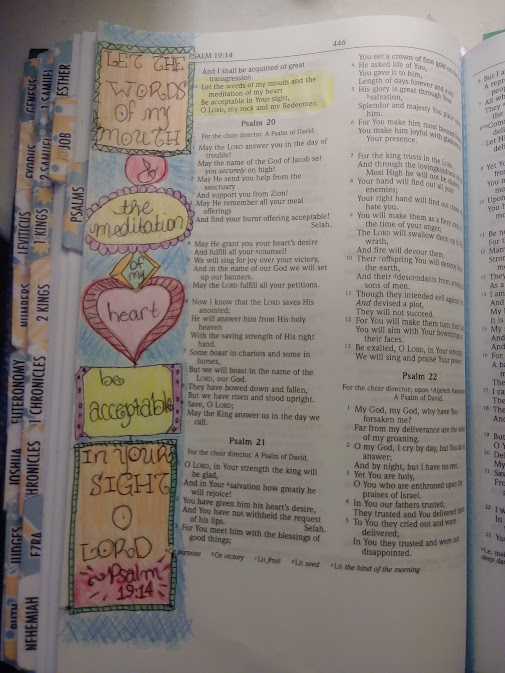 GENESIS
EXODUS
LEVITICUS
NUMBERS
DEUTERONOMY
JOSHUA
JUDGES
RUTH
1 SAMUEL
2 SAMUEL
1 KINGS
2 KINGS
1 CHRONICLES
CHRONICLES
EZRA
NEHEMIAH
ESTHER
JOB
PSALMS
LET THE
WORDS
of my
MOUTH
&
the
meditation
of
my
heart
be
acceptable
IN YOUR
SIGHT
O
LORD
Psalm
19:14
PSALM 19:14
446
And I shall be acquitted of great
transgression.
14 Let the words of my mouth and the
meditation of my heart
Be acceptable in Your sight,
O LORD, my rock and my Redeemer.
Psalm 20
For the choir director. A Psalm of David.
May the LORD answer you in the day of
trouble!
May the name of the God of Jacob set
you securely on high!
May He send you help from the
sanctuary
And support you from Zion!
May He remember all your meal
offerings
And find your burnt offering acceptable!
Selah.
May He grant you your heart's desire
And fulfill all your counsel!
We will sing for joy over your victory,
And in the name of our God we will set
up our banners.
May the LORD fulfill all your petitions.
Now I know that the LORD saves His
anointed;
He will answer him from His holy
heaven
With the saving strength of His right
hand.
Some boast in chariots and some in
horses,
But we will boast in the name of the
LORD, our God.
They have bowed down and fallen,
But we have risen and stood upright.
Save, O LORD;
May the King answer us in the day we
call.
Psalm 21
For the choir director. A Psalm of David.
O LORD, in Your strength the king will
be glad,
And in Your salvation how greatly he
will rejoice!
You have given him his heart's desire,
And You have not withheld the request
of his lips.
Selah.
For You meet him with the blessings of
good things;
You set a crown of fine gold on
4 He asked life of You,
You gave it to him,
Length of days forever and
5 His glory is great through Your
salvation,
Splendor and majesty You
him.
6 For You make him most blessed
You make him joyful with gladness
Your presence.
7 For the king trusts in the LORD,
And through the lovingkindness
Most High he will not be
8 Your hand will find out all your
enemies;
Your right hand will find out
hate you.
9 You will make them as a fiery
the time of your anger;
The LORD will swallow them up in
wrath,
And fire will devour them.
10 Their offspring You will destroy
the earth,
And their descendants from
sons of men.
11 Though they intended evil against
And devised a plot,
They will not succeed.
12 For You will make them turn
You will aim with Your bowstrings
their faces.
13 Be exalted, O LORD, in Your strength
We will sing and praise Your
Psalm 22
For the choir director; upon Aijeleth
A Psalm of David.
1 My God, my God, why have You
forsaken me?
Far from my deliverance are the
of my groaning.
2 O my God, I cry by day, but You
answer;
And by night, but I have no rest.
3 Yet You are holy,
O You who are enthroned upon the
praises of Israel.
4 In You our fathers trusted;
They trusted and You delivered
5 To You they cried out and were
delivered;
In You they trusted and were not
disappointed.
purpose Or victory Lit fruit Lit seed Lit the hind of the morning